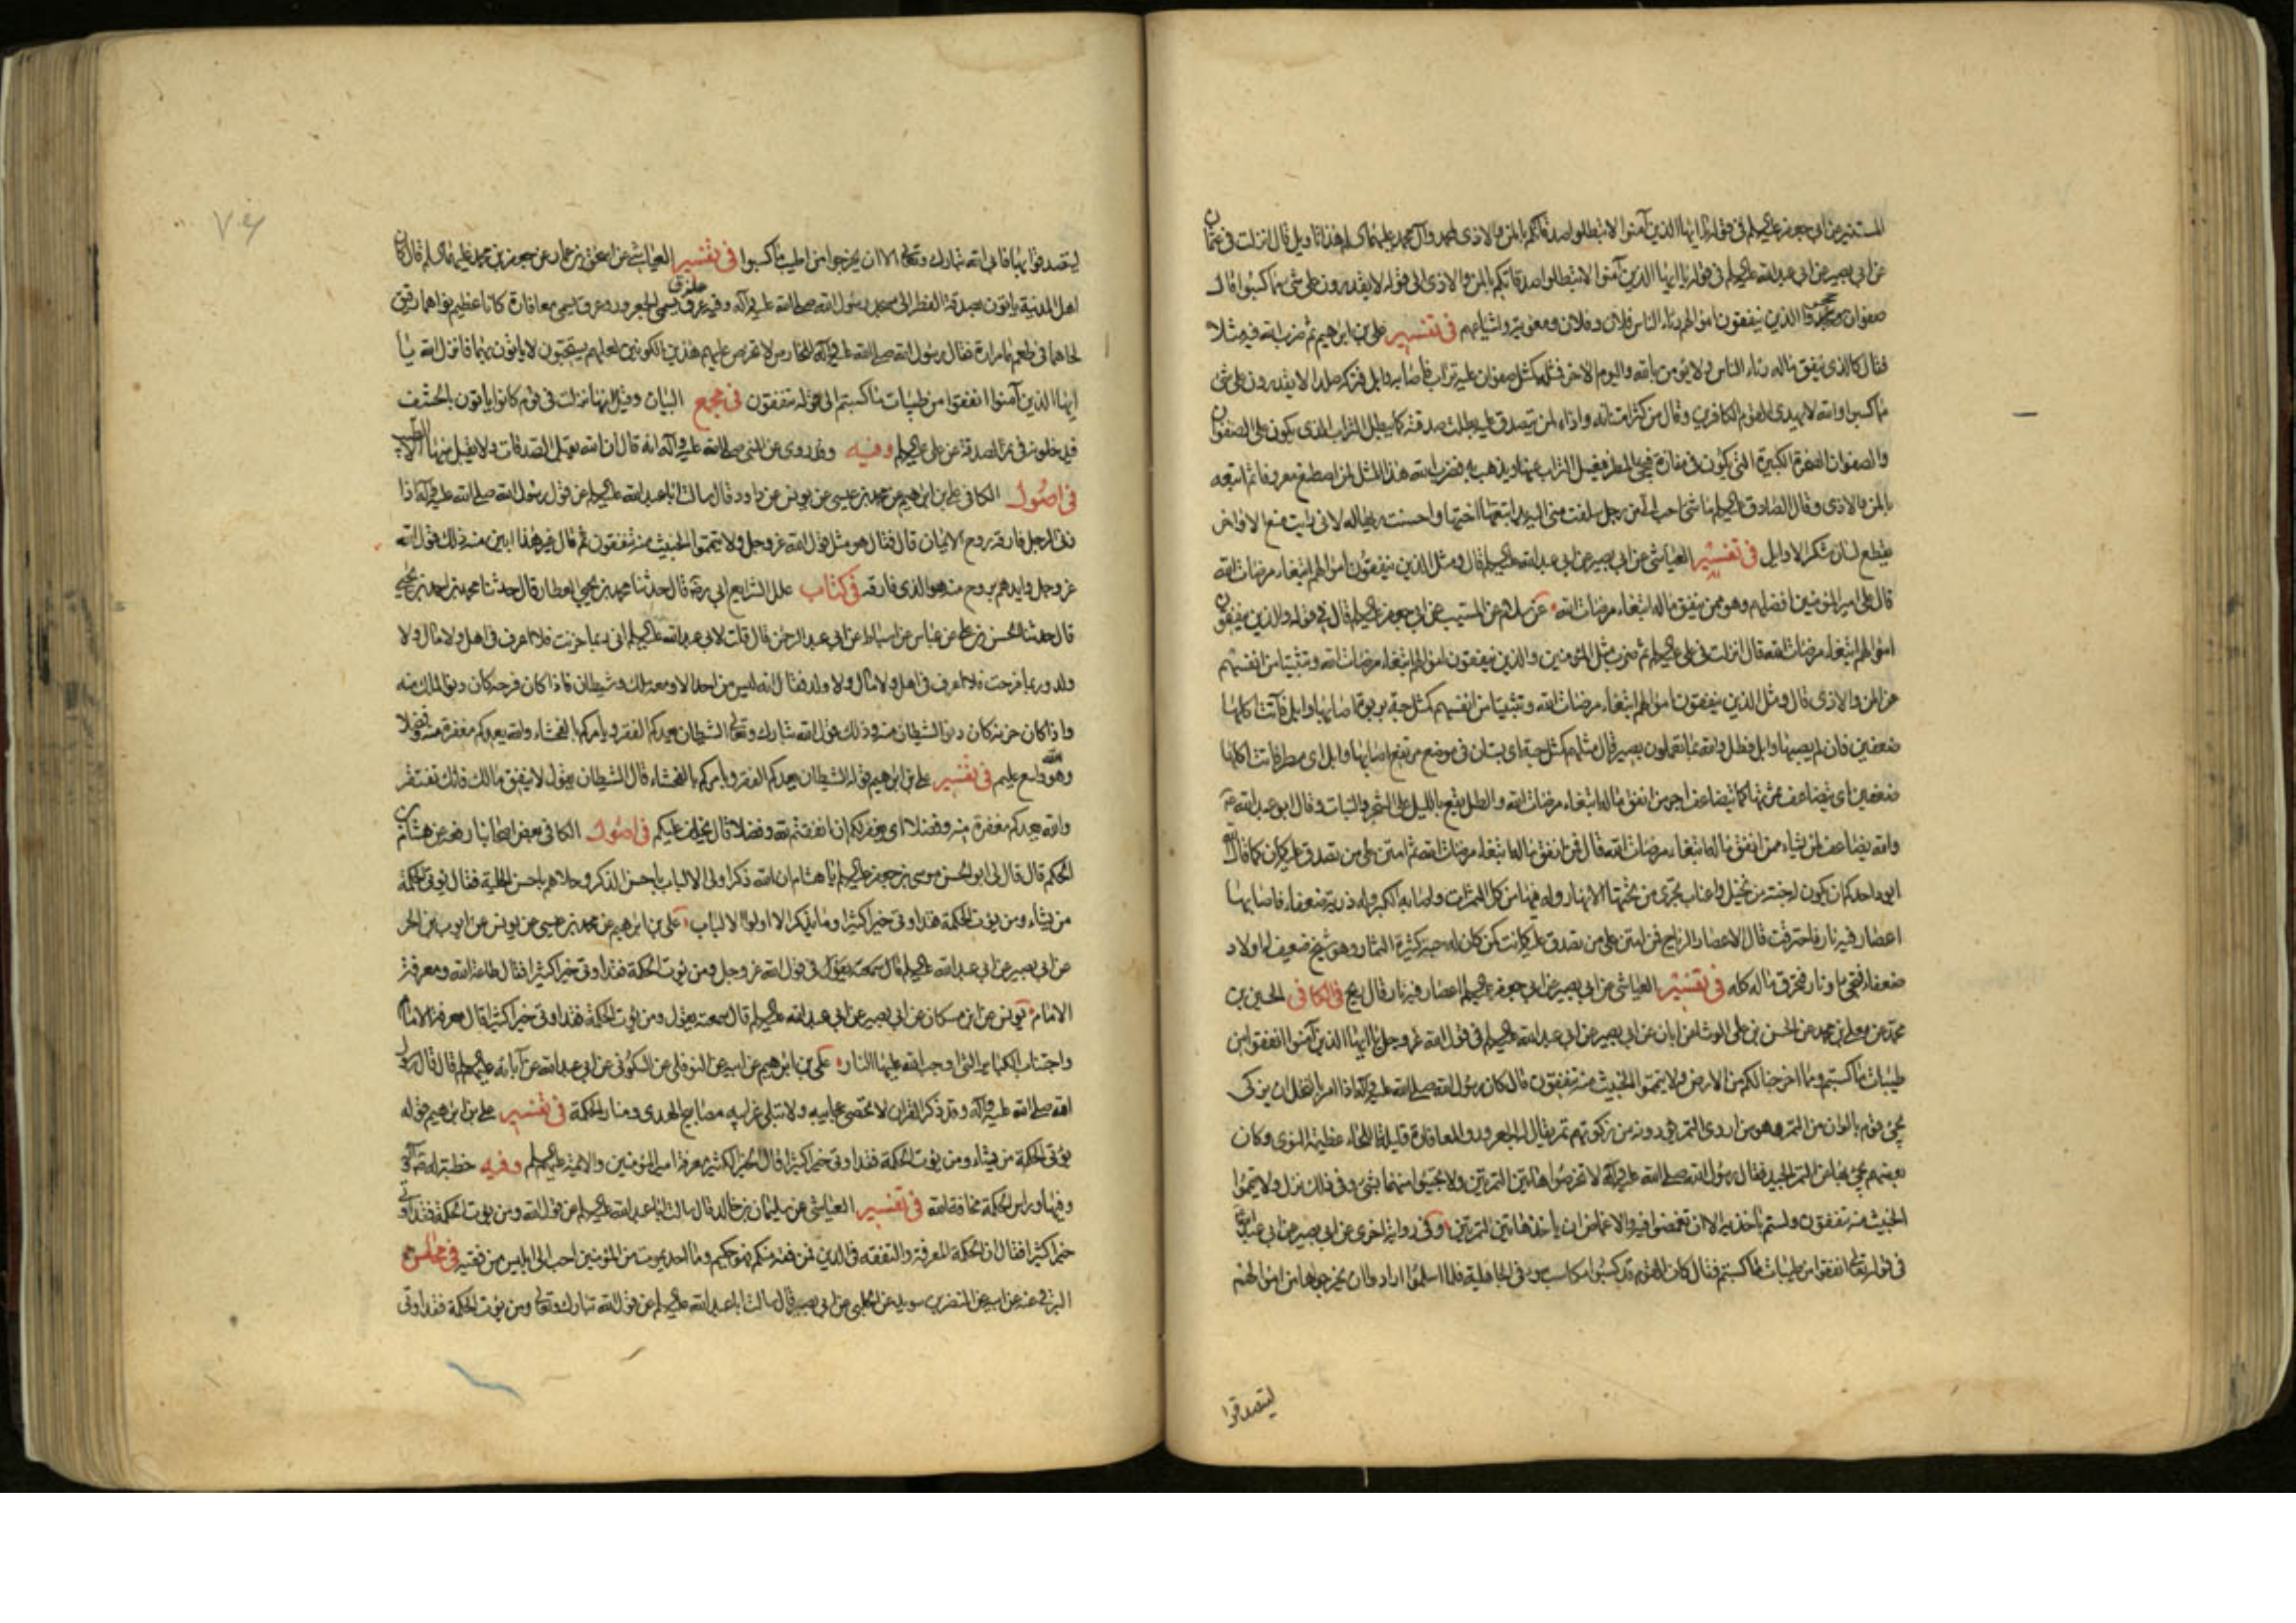 المستنير عن ابى جعفر عليه السلام فى قوله يا ايها الذين آمنوا لا تبطلوا صدقاتكم بالمن والاذى لمحمد وآل محمد عليهم السلام هذا تاويل قال انزلت فى عثمان
عن ابى بصير عن ابى عبد الله عليه السلام فى قوله يا ايها الذين آمنوا لا تبطلوا صدقاتكم بالمن والاذى الى قوله لا يقدرون على شئ مما كسبوا قال
صفوان الذين ينفقون اموالهم رئاء الناس فلان وفلان ومعوية واشياعهم فى تفسير على بن ابراهيم ثم ضرب الله فيه مثلا
فقال كالذى ينفق ماله رئاء الناس ولا يؤمن بالله واليوم الاخر فمثله كمثل صفوان عليه تراب فاصابه وابل فتركه صلدا لا يقدرون على شئ
مما كسبوا والله لا يهدى القوم الكافرين وقال من كثر امتنانه واذاه لمن يتصدق عليه بطلت صدقته كما يبطل التراب الذى يكون على الصفوان
والصفوان الصخرة الكبيرة التى يكون فى مفازة فيجئ المطر فيغسل التراب عنها ويذهب به فضرب الله هذا المثل لمن اصطنع معروفا ثم اتبعه
بالمن والاذى وقال الصادق عليه السلام ما شئ احب الى من رجل سلفت منى اليه يد اتبعتها اختها واحسنت بها له لانى رايت منع الاواخر
يقطع لسان شكر الاوايل فى تفسير العياشى عن ابى بصير عن ابى عبد الله عليه السلام قال ومثل الذين ينفقون اموالهم ابتغاء مرضات الله
قال على امير المؤمنين افضلهم وهو ممن ينفق ماله ابتغاء مرضات الله عن سلام عن المستنير عن ابى جعفر عليه السلام قال فى قوله والذين ينفقون
اموالهم ابتغاء مرضات الله قال انزلت فى على عليه السلام ثم ضرب مثل المؤمنين والذين ينفقون اموالهم ابتغاء مرضات الله وتثبيتا من انفسهم
عن المن والاذى قال ومثل الذين ينفقون اموالهم ابتغاء مرضات الله وتثبيتا من انفسهم كمثل جنة بربوة اصابها وابل فآتت اكلها
ضعفين فان لم يصبها وابل فطل والله بما تعملون بصير قال مثلهم كمثل جنة اى بستان فى موضع مرتفع اصابها وابل اى مطر فآتت اكلها
ضعفين اى يتضاعف ثمرتها كما يتضاعف اجر من انفق ماله ابتغاء مرضات الله والطل يقع بالليل على الشجر والنبات وقال ابو عبد الله
والله يضاعف لمن يشاء ممن انفق ماله ابتغاء مرضات الله قال فمن انفق ماله ابتغاء مرضات الله ثم امتن على من تصدق عليه كان كما قال الله
ايود احدكم ان يكون له جنة من نخيل واعناب تجرى من تحتها الانهار وله فيها من كل الثمرات واصابه الكبر وله ذرية ضعفاء فاصابها
اعصار فيه نار فاحترقت قال الاعصار الرياح فمن امتن على من تصدق عليه كانت كمن كان له جنة كثيرة الثمار وهو شيخ ضعيف له اولاد
ضعفاء فتجئ ريح او نار فتحرق ماله كله فى تفسير العياشى عن ابى بصير عن ابى جعفر عليه السلام اعصار فيه نار قال ريح فى الكافى الحسين بن
محمد عن معلى بن محمد عن الحسن بن على الوشا عن ابان عن ابى بصير عن ابى عبد الله عليه السلام فى قول الله عز وجل يا ايها الذين آمنوا انفقوا من
طيبات ما كسبتم ومما اخرجنا لكم من الارض ولا تيمموا الخبيث منه تنفقون قال كان رسول الله صلى الله عليه وآله اذا امر بالنخل ان يزكى
يجئ قوم بالوان من التمر وهو من اردى التمر يؤدونه من زكوتهم تمر يقال له الجعرور والمعافارة قليلة اللحاء عظيمة النوى وكان
بعضهم يجئ بها عن التمر الجيد فقال رسول الله صلى الله عليه وآله لا تخرصوا هاتين التمرتين ولا تجيئوا منهما بشئ وفى ذلك نزل ولا تيمموا
الخبيث منه تنفقون ولستم بآخذيه الا ان تغمضوا فيه والاغماض ان ياخذ هاتين التمرتين وفى رواية اخرى عن ابى بصير عن ابى عبد الله
فى قوله تعالى انفقوا من طيبات ما كسبتم فقال كان القوم قد كسبوا مكاسب سوء فى الجاهلية فلما اسلموا ارادوا ان يخرجوها من اموالهم
ليتصدقوا
ليتصدقوا بها فابى الله تبارك وتعالى الا ان يخرجوا من اطيب ما كسبوا فى تفسير العياشى عن اسحق بن عمار عن جعفر بن محمد عليهما السلام قال كان
اهل المدينة ياتون بصدقة الفطر الى مسجد رسول الله صلى الله عليه وآله وفيه عرق يسمى الجعرور وعرق يسمى معافارة كانا عظيم نواهما رقيق
لحاهما فى طعمهما مرارة فقال رسول الله صلى الله عليه وآله للخارص لا تخرص عليهم هذين اللونين لعلهم يستحيون لا ياتون بهما فانزل الله يا
ايها الذين آمنوا انفقوا من طيبات ما كسبتم الى قوله تنفقون فى مجمع البيان وقيل انها نزلت فى قوم كانوا ياتون بالحشف
فيدخلونه فى تمر الصدقة عن على عليه السلام وفيه وقد روى عن النبى صلى الله عليه وآله انه قال ان الله يقبل الصدقات ولا يقبل منها الا الطيب
فى اصول الكافى على بن ابراهيم عن محمد بن عيسى عن يونس عن داود قال سالت ابا عبد الله عليه السلام عن قول رسول الله صلى الله عليه وآله اذا
زنى الرجل فارقه روح الايمان قال فقال هو مثل قول الله عز وجل ولا تيمموا الخبيث منه تنفقون ثم قال غير هذا ابين منه ذلك قول الله
عز وجل وايدهم بروح منه هو الذى فارقه فى كتاب علل الشرايع ابى ره قال حدثنا محمد بن يحيى العطار قال حدثنا محمد بن احمد بن يحيى
قال حدثنا الحسن بن على عن عباس عن اسباط عن ابى عبد الرحمن قال قلت لابى عبد الله عليه السلام انى ربما حزنت فلا اعرف فى اهل ولا مال ولا
ولد وربما فرحت فلا اعرف فى اهل ولا مال ولا ولد فقال انه ليس من احد الا ومعه ملك وشيطان فاذا كان فرحه كان دنو الملك منه
واذا كان حزنه كان دنو الشيطان منه وذلك قول الله تبارك وتعالى الشيطان يعدكم الفقر ويامركم بالفحشاء والله يعدكم مغفرة منه وفضلا
والله واسع عليم فى تفسير على بن ابراهيم قوله الشيطان يعدكم الفقر ويامركم بالفحشاء قال الشيطان يقول لا ينفق مالك فانك تفتقر
والله يعدكم مغفرة منه وفضلا اى يغفر لكم ان انفقتم لله وفضلا قال يخلف عليكم فى اصول الكافى بعض اصحابنا رفعه عن هشام بن
الحكم قال قال لى ابو الحسن موسى بن جعفر عليه السلام يا هشام ان الله ذكر اولى الالباب باحسن الذكر وحلاهم باحسن الحلية فقال يؤتى الحكمة
من يشاء ومن يؤت الحكمة فقد اوتى خيرا كثيرا وما يذكر الا اولوا الالباب على بن ابراهيم عن محمد بن عيسى عن يونس عن ايوب بن الحر
عن ابى بصير عن ابى عبد الله عليه السلام قال سمعته يقول فى قول الله عز وجل ومن يؤت الحكمة فقد اوتى خيرا كثيرا فقال طاعة الله ومعرفة
الامام يونس عن ابن مسكان عن ابى بصير عن ابى عبد الله عليه السلام قال سمعته يقول ومن يؤت الحكمة فقد اوتى خيرا كثيرا قال معرفة الامام
واجتناب الكبائر التى اوجب الله عليها النار على بن ابراهيم عن ابيه عن النوفلى عن السكونى عن ابى عبد الله عن آبائه عليهم السلام قال قال رسول
الله صلى الله عليه وآله وقد ذكر القران لا تحصى عجايبه ولا تبلى غرايبه مصابيح الهدى ومنار الحكمة فى تفسير على بن ابراهيم قوله
يؤتى الحكمة من يشاء ومن يؤت الحكمة فقد اوتى خيرا كثيرا قال الخير الكثير معرفة امير المؤمنين والائمة عليهم السلام وفيه خطبة له
وفيها وراس الحكمة مخافة الله فى تفسير العياشى عن سليمان بن خالد قال سالت ابا عبد الله عليه السلام عن قول الله ومن يؤت الحكمة فقد اوتى
خيرا كثيرا فقال ان الحكمة المعرفة والتفقه فى الدين فمن فقه منكم فهو حكيم وما احد يموت من المؤمنين احب الى ابليس من فقيه فى محاسن
البرقى عنه عن ابيه عن النضر بن سويد عن الحلبى عن ابى بصير قال سالت ابا عبد الله عليه السلام عن قول الله تبارك وتعالى ومن يؤت الحكمة فقد اوتى